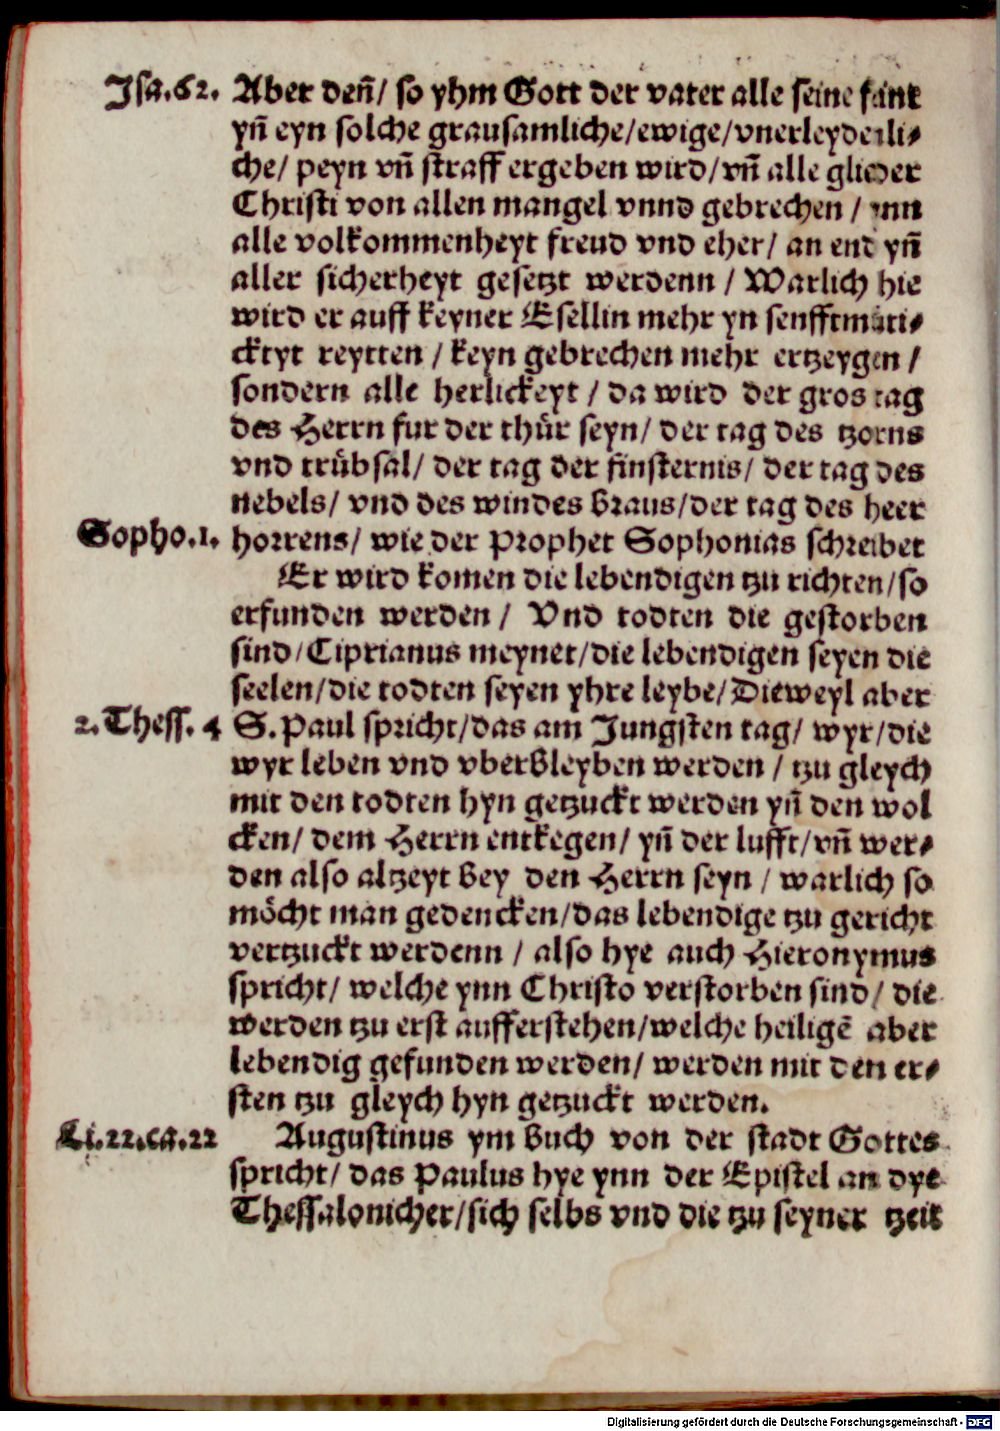 Isa.62. Aber deñ/ so yhm Gott der vater alle seine
yñ eyn solche grausamliche/ewige/vnerleydenli⸗
che/ peyn vñ straff ergeben wird/vñ alle glieder
Christi von allen mangel vnnd gebrechen / ynn
alle volkommenheyt freud vnd eher/ an end yñ
aller sicherheyt gesetzt werdenn / Warlich hie
wird er auff keyner Esellin mehr yn senfftmüti⸗
cktyt reytten / keyn gebrechen mehr ertzeygen /
sondern alle herlickeyt / da wird der gros tag
des Herrn fur der thůr seyn/ der tag des tzorns
vnd trůbsal/ der tag der finsternis/ der tag des
nebels/ vnd des windes braus/der tag des heer
Sopho.1. horrens/ wie der Prophet Sophonias schreibet
Er wird komen die lebendigen tzu richten/so
erfunden werden / Vnd todten die gestorben
sind/Ciprianus meynet/die lebendigen seyen die
seelen/die todten seyen yhre leybe/Dieweyl aber
2.Thess. 4 S.Paul spricht/das am Jungsten tag/ wyr/die
wyr leben vnd vberbleyben werden / tzu gleych
mit den todten hyn getzuckt werden yñ den wol
cken/ dem Herrn entkegen/ yñ der lufft/vñ wer⸗
den also altzeyt bey den Herrn seyn / warlich so
möcht man gedencken/das lebendige tzu gericht
vertzuckt werdenn / also hye auch Hieronymus
spricht/ welche ynn Christo verstorben sind/ die
werden tzu erst aufferstehen/welche heiligē aber
lebendig gefunden werden/ werden mit den er⸗
sten tzu gleych hyn getzuckt werden.
Li.22.ca.22 Augustinus ym buch von der stadt Gottes
spricht/ das Paulus hye ynn der Epistel an dye
Thessalonicher/sich selbs vnd die tzu seyner tzeit
Digitalisierung gefördert durch die Deutsche Forschungsgemeinschaft - DFG